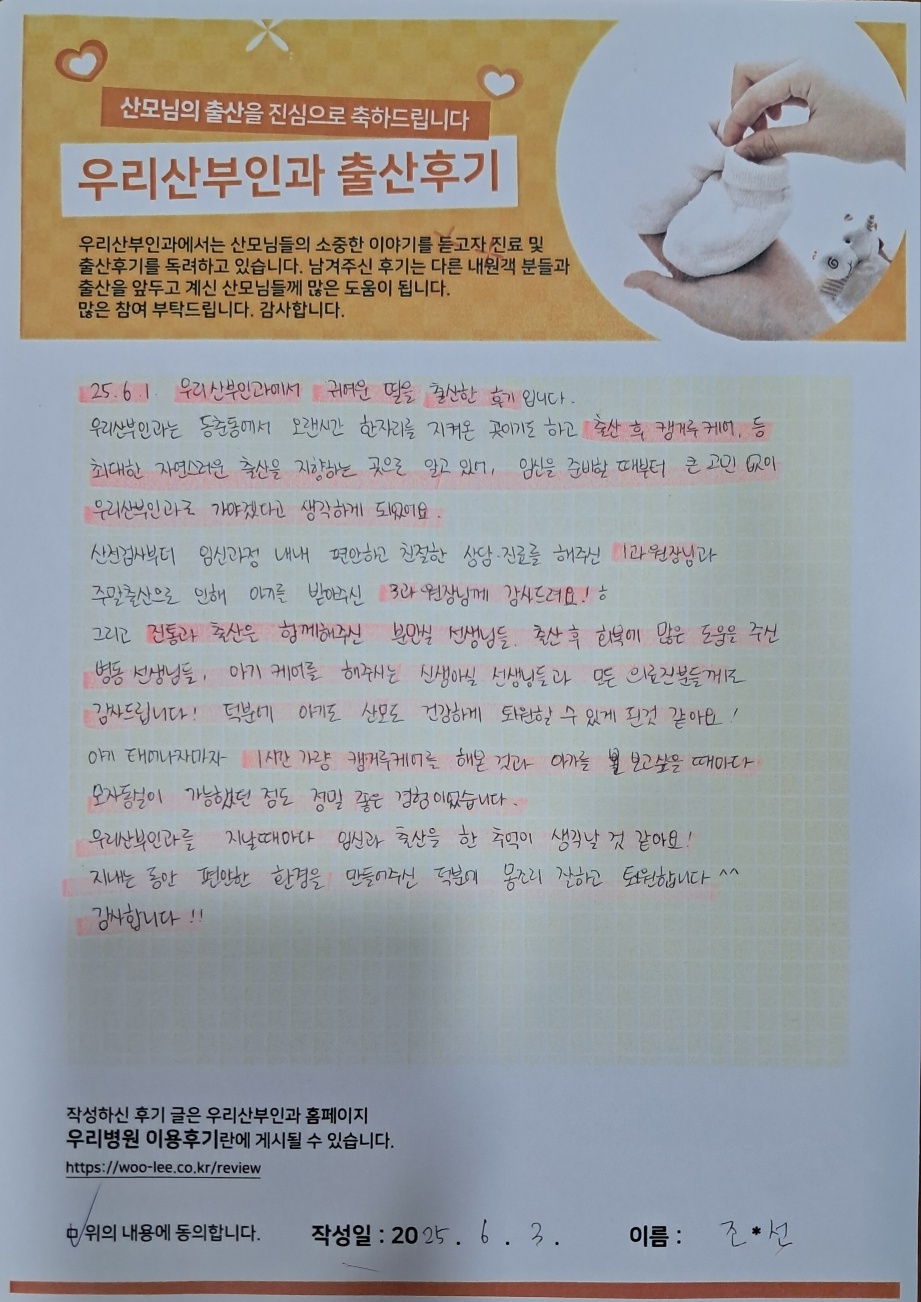 산모님의 출산을 진심으로 축하드립니다
우리산부인과 출산후기
우리산부인과에서는 산모님들의 소중한 이야기를 듣고자 진료 및
출산후기를 독려하고 있습니다. 남겨주신 후기는 다른 내원객 분들과
출산을 앞두고 계신 산모님들께 많은 도움이 됩니다.
많은 참여 부탁드립니다. 감사합니다.
25.6.1. 우리산부인과에서 귀여운 딸을 출산한 후기입니다.
우리산부인과는 동춘동에서 오랜시간 한자리를 지켜온 곳이기도 하고 출산 후 캥거루 케어, 등
최대한 자연스러운 출산을 지향하는 곳으로 알고 있어, 임신을 준비할 때부터 큰 고민 없이
우리산부인과로 가야겠다고 생각하게 되었어요.
산전검사부터 임신과정 내내 편안하고 친절한 상담·진료를 해주신 1과 원장님과
주말출산으로 인해 아기를 받아주신 3과 원장님께 감사드려요! ㅎ
그리고 진통과 출산은 함께해주신 분만실 선생님들, 출산 후 회복에 많은 도움을 주신
병동 선생님들, 아기 케어를 해주시는 신생아실 선생님들과 모든 의료진분들께도
감사드립니다! 덕분에 아기도 산모도 건강하게 퇴원할 수 있게 된것 같아요!
아기 태어나자마자 1시간 가량 캥거루케어를 해본 것과 아가를 보고싶을 때마다
모자동실이 가능했던 점도 정말 좋은 경험이었습니다.
우리산부인과를 지날때마다 임신과 출산을 한 추억이 생각날 것 같아요!
지내는 동안 편안한 환경을 만들어주신 덕분에 몸조리 잘하고 퇴원합니다 ^^
감사합니다 !!
작성하신 후기 글은 우리산부인과 홈페이지
우리병원 이용후기란에 게시될 수 있습니다.
https://woo-lee.co.kr/review
위의 내용에 동의합니다. 작성일 : 2025. 6. 3. 이름 : 조*선